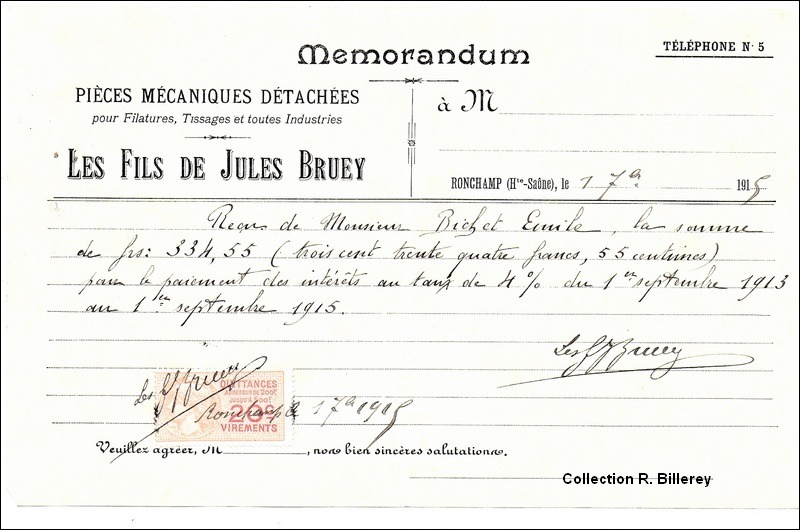 Memorandum
TÉLÉPHONE N° 5
PIÈCES MÉCANIQUES DÉTACHÉES
pour Filatures, Tissages et toutes Industries
LES FILS DE JULES BRUEY
à M
RONCHAMP (Hte-Saône), le 1 7bre 1915
Reçu de Monsieur Bichet Emile, la somme
de frs: 334,55 (trois cent trente quatre francs, 55 centimes)
pour le paiement des intérêts au taux de 4% du 1er septembre 1913
au 1er septembre 1915.
Les F J Bruey
Les F J Bruey
QUITTANCES
AU-DESSUS DE 200F
JUSQU'À 500F
20c
VIREMENTS
Ronchamp le 1 7bre 1915
Veuillez agréer, M , nos bien sincères salutations.
Collection R. Billerey